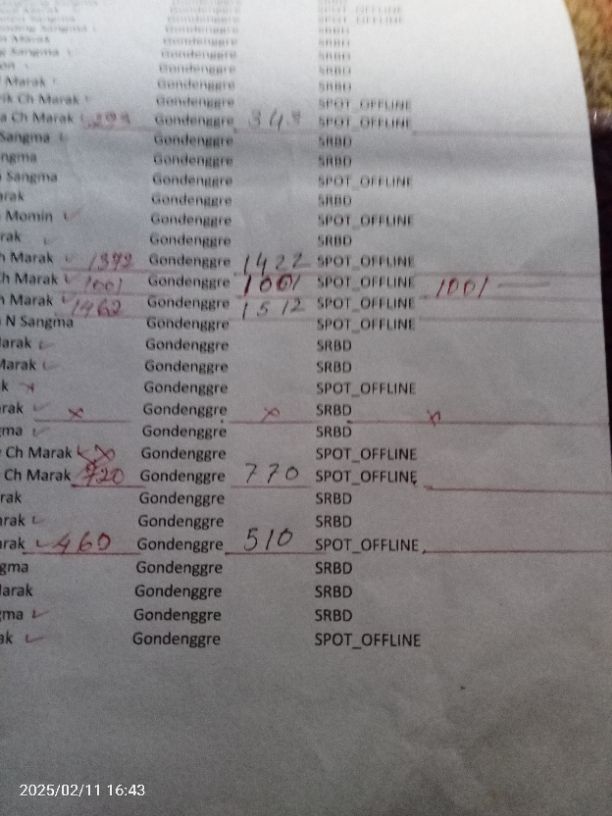 Gondenggre SRBD
Sangma Gondenggre SRBD
Gondenggre SRBD
Marak Gondenggre SRBD
Ch Marak Gondenggre SPOT_OFFLINE
a Ch Marak Gondenggre SPOT_OFFLINE
Sangma Gondenggre SRBD
ngma Gondenggre SRBD
Sangma Gondenggre SPOT_OFFLINE
arak Gondenggre SRBD
Momin ✓ Gondenggre SPOT_OFFLINE
rak ✓ Gondenggre SRBD
h Marak ✓ 1372 Gondenggre 1422 SPOT_OFFLINE
Ch Marak ✓ 1001 Gondenggre 1001 SPOT_OFFLINE 1001
h Marak ✓ 1462 Gondenggre 1512 SPOT_OFFLINE
N Sangma Gondenggre SPOT_OFFLINE
arak ✓ Gondenggre SRBD
Marak ✓ Gondenggre SRBD
k x Gondenggre SPOT_OFFLINE
rak ✓ x Gondenggre x SRBD x
ma ✓ Gondenggre SRBD
Ch Marak Gondenggre SPOT_OFFLINE
Ch Marak 720 Gondenggre 770 SPOT_OFFLINE
rak Gondenggre SRBD
arak ✓ Gondenggre SRBD
arak ✓ 460 Gondenggre 510 SPOT_OFFLINE
gma Gondenggre SRBD
arak Gondenggre SRBD
gma ✓ Gondenggre SRBD
ak ✓ Gondenggre SPOT_OFFLINE
2025/02/11 16:43